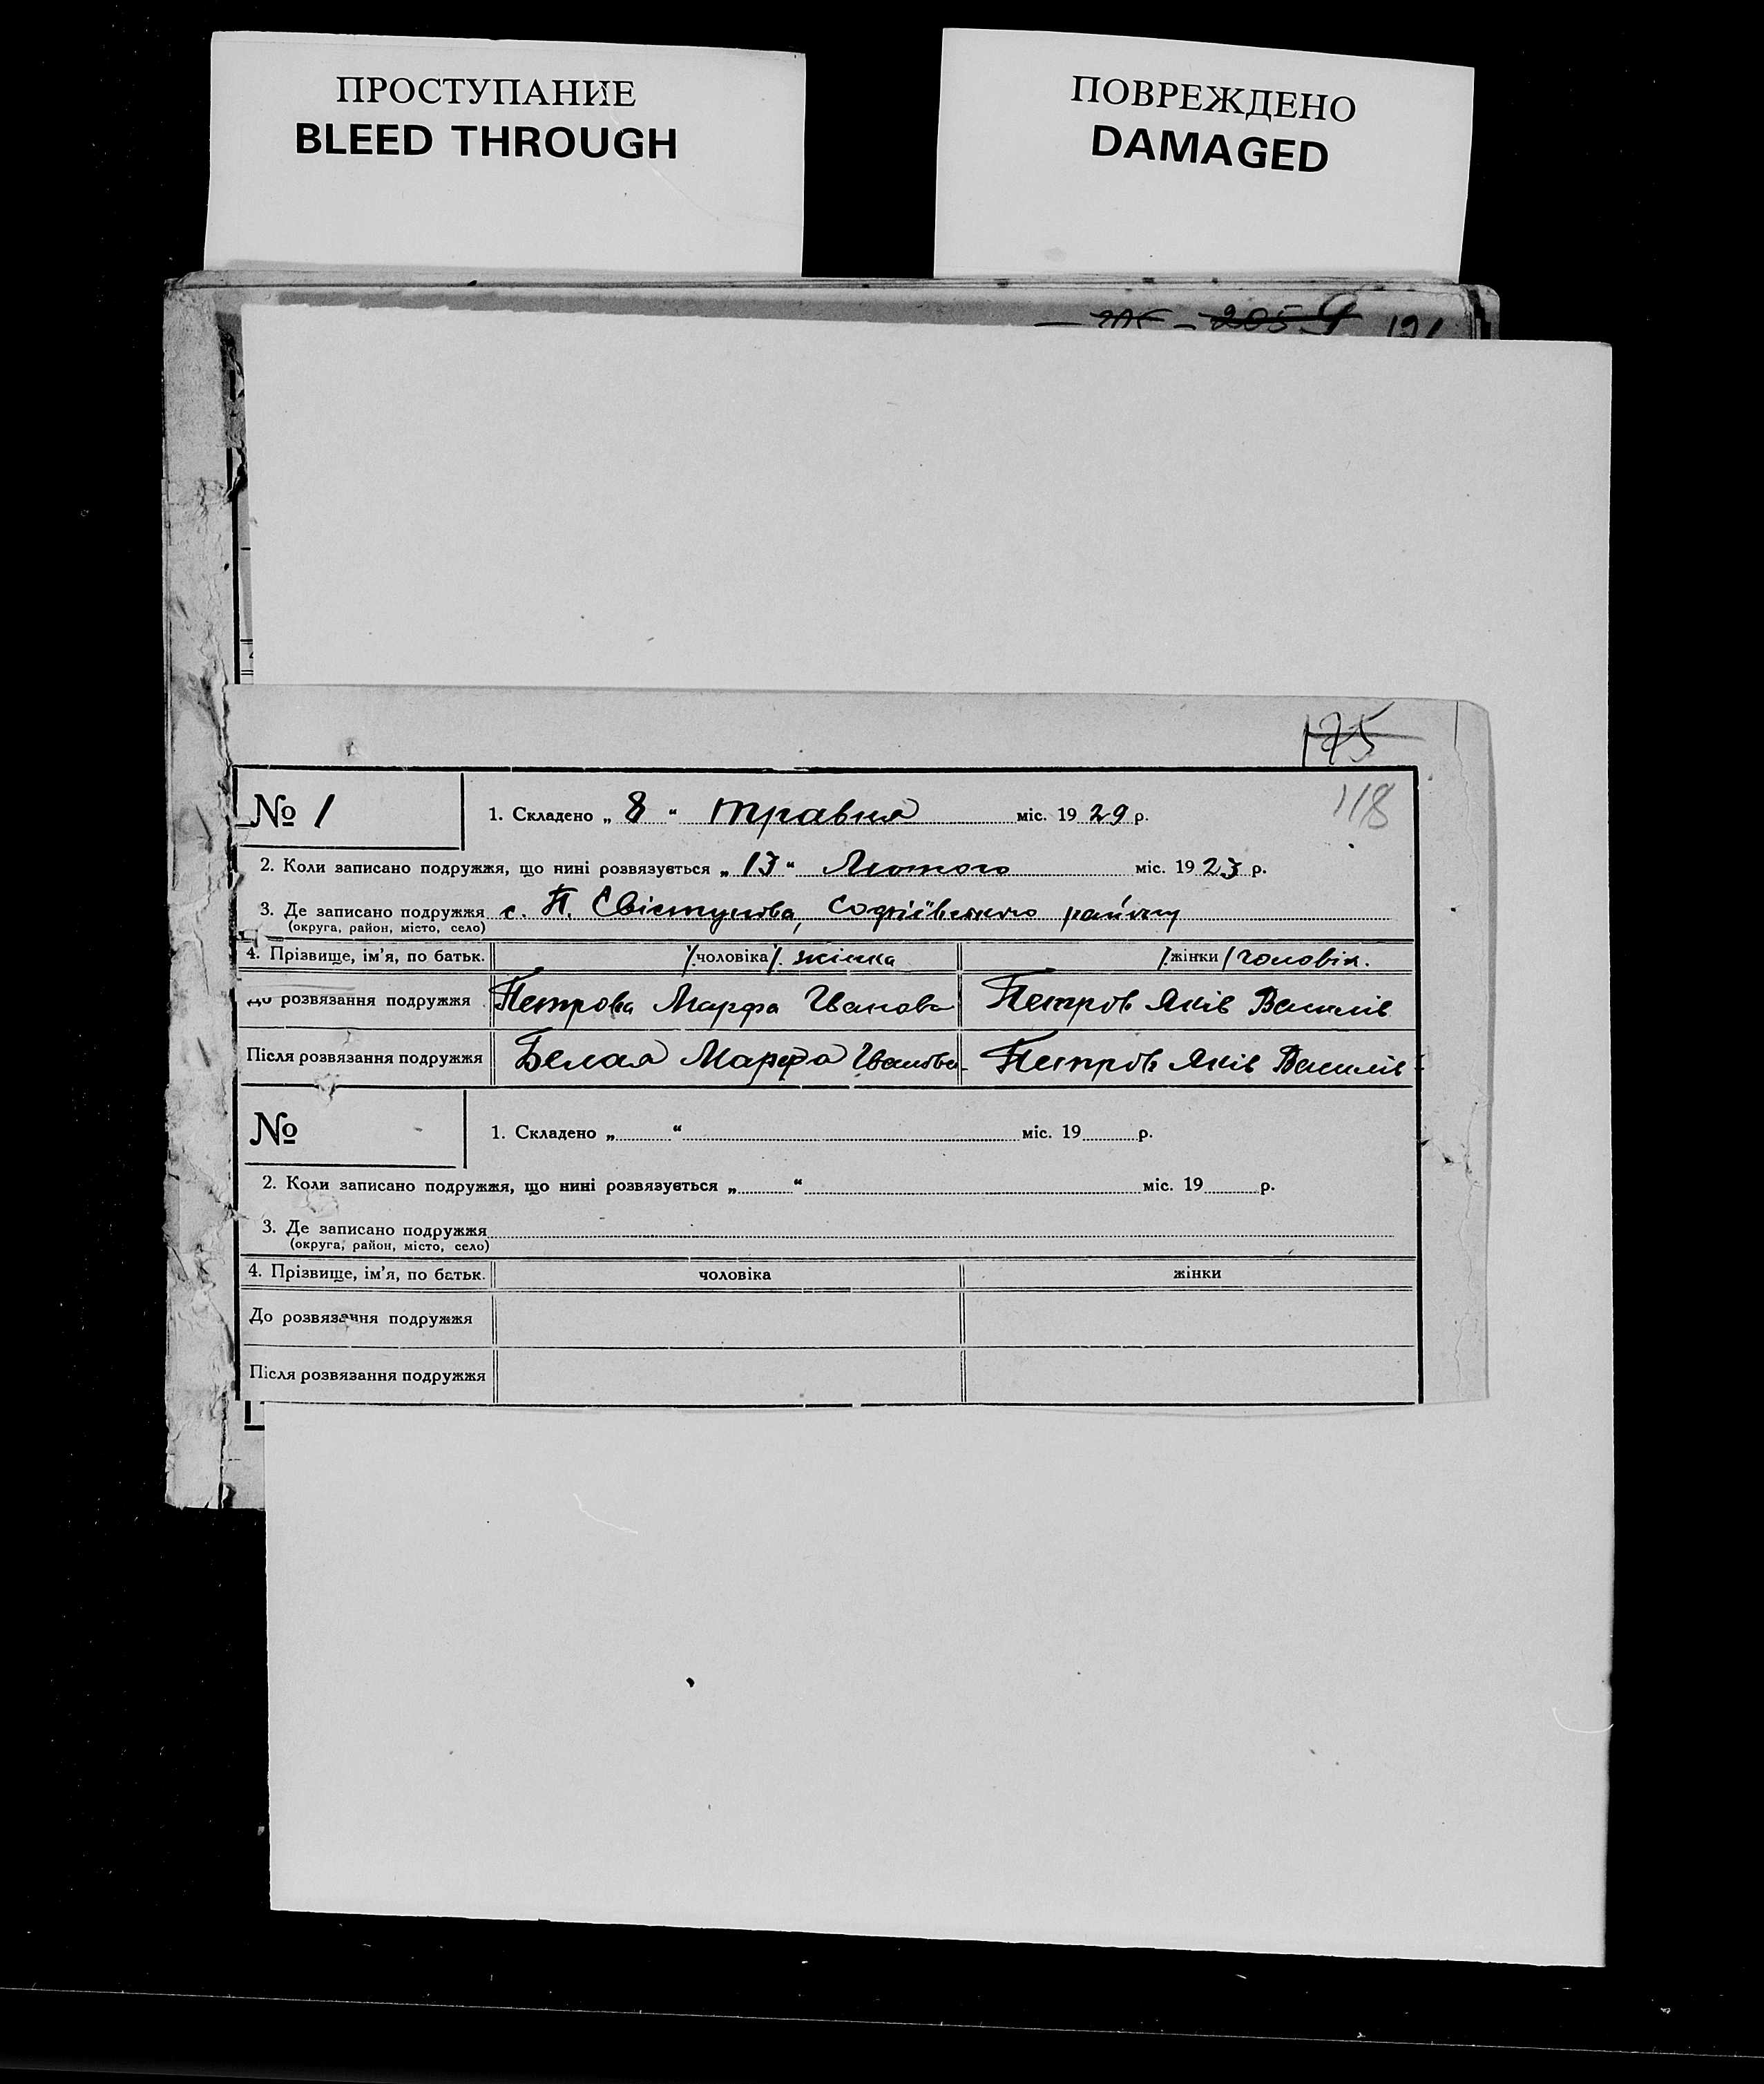 ПРОСТУПАНИЕ
BLEED THROUGH
ПОВРЕЖДЕНО
DAMAGED
175
118
№ 1
1. Складено „ 8 “ травня міс. 19 29 р.
2. Коли записано подружжя, що нині розвязується „ 13 “ Лютого міс. 19 23 р.
3. Де записано подружжя с. П. Свістунова, Софіївського району
(округа, район, місто, село)
4. Прізвище, ім’я, по батьк. /чоловіка/ жінка /жінки/ чоловік.
До розвязання подружжя Петрова Марфа Іванова Петров Яків Василів
Після розвязання подружжя Белая Марфа Іванова Петров Яків Василів
№
1. Складено „ “ міс. 19 р.
2. Коли записано подружжя, що нині розвязується „ “ міс. 19 р.
3. Де записано подружжя
(округа, район, місто, село)
4. Прізвище, ім’я, по батьк. чоловіка жінки
До розвязання подружжя
Після розвязання подружжя